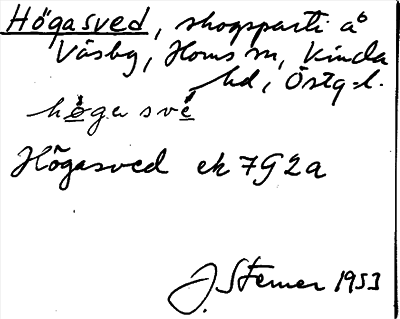 Högasved, skogsparti å
Väsby, Horns sn, Kinda
hd, Östg-l.
höga své
Högasved ek 7G2a
J. Sterner 1953